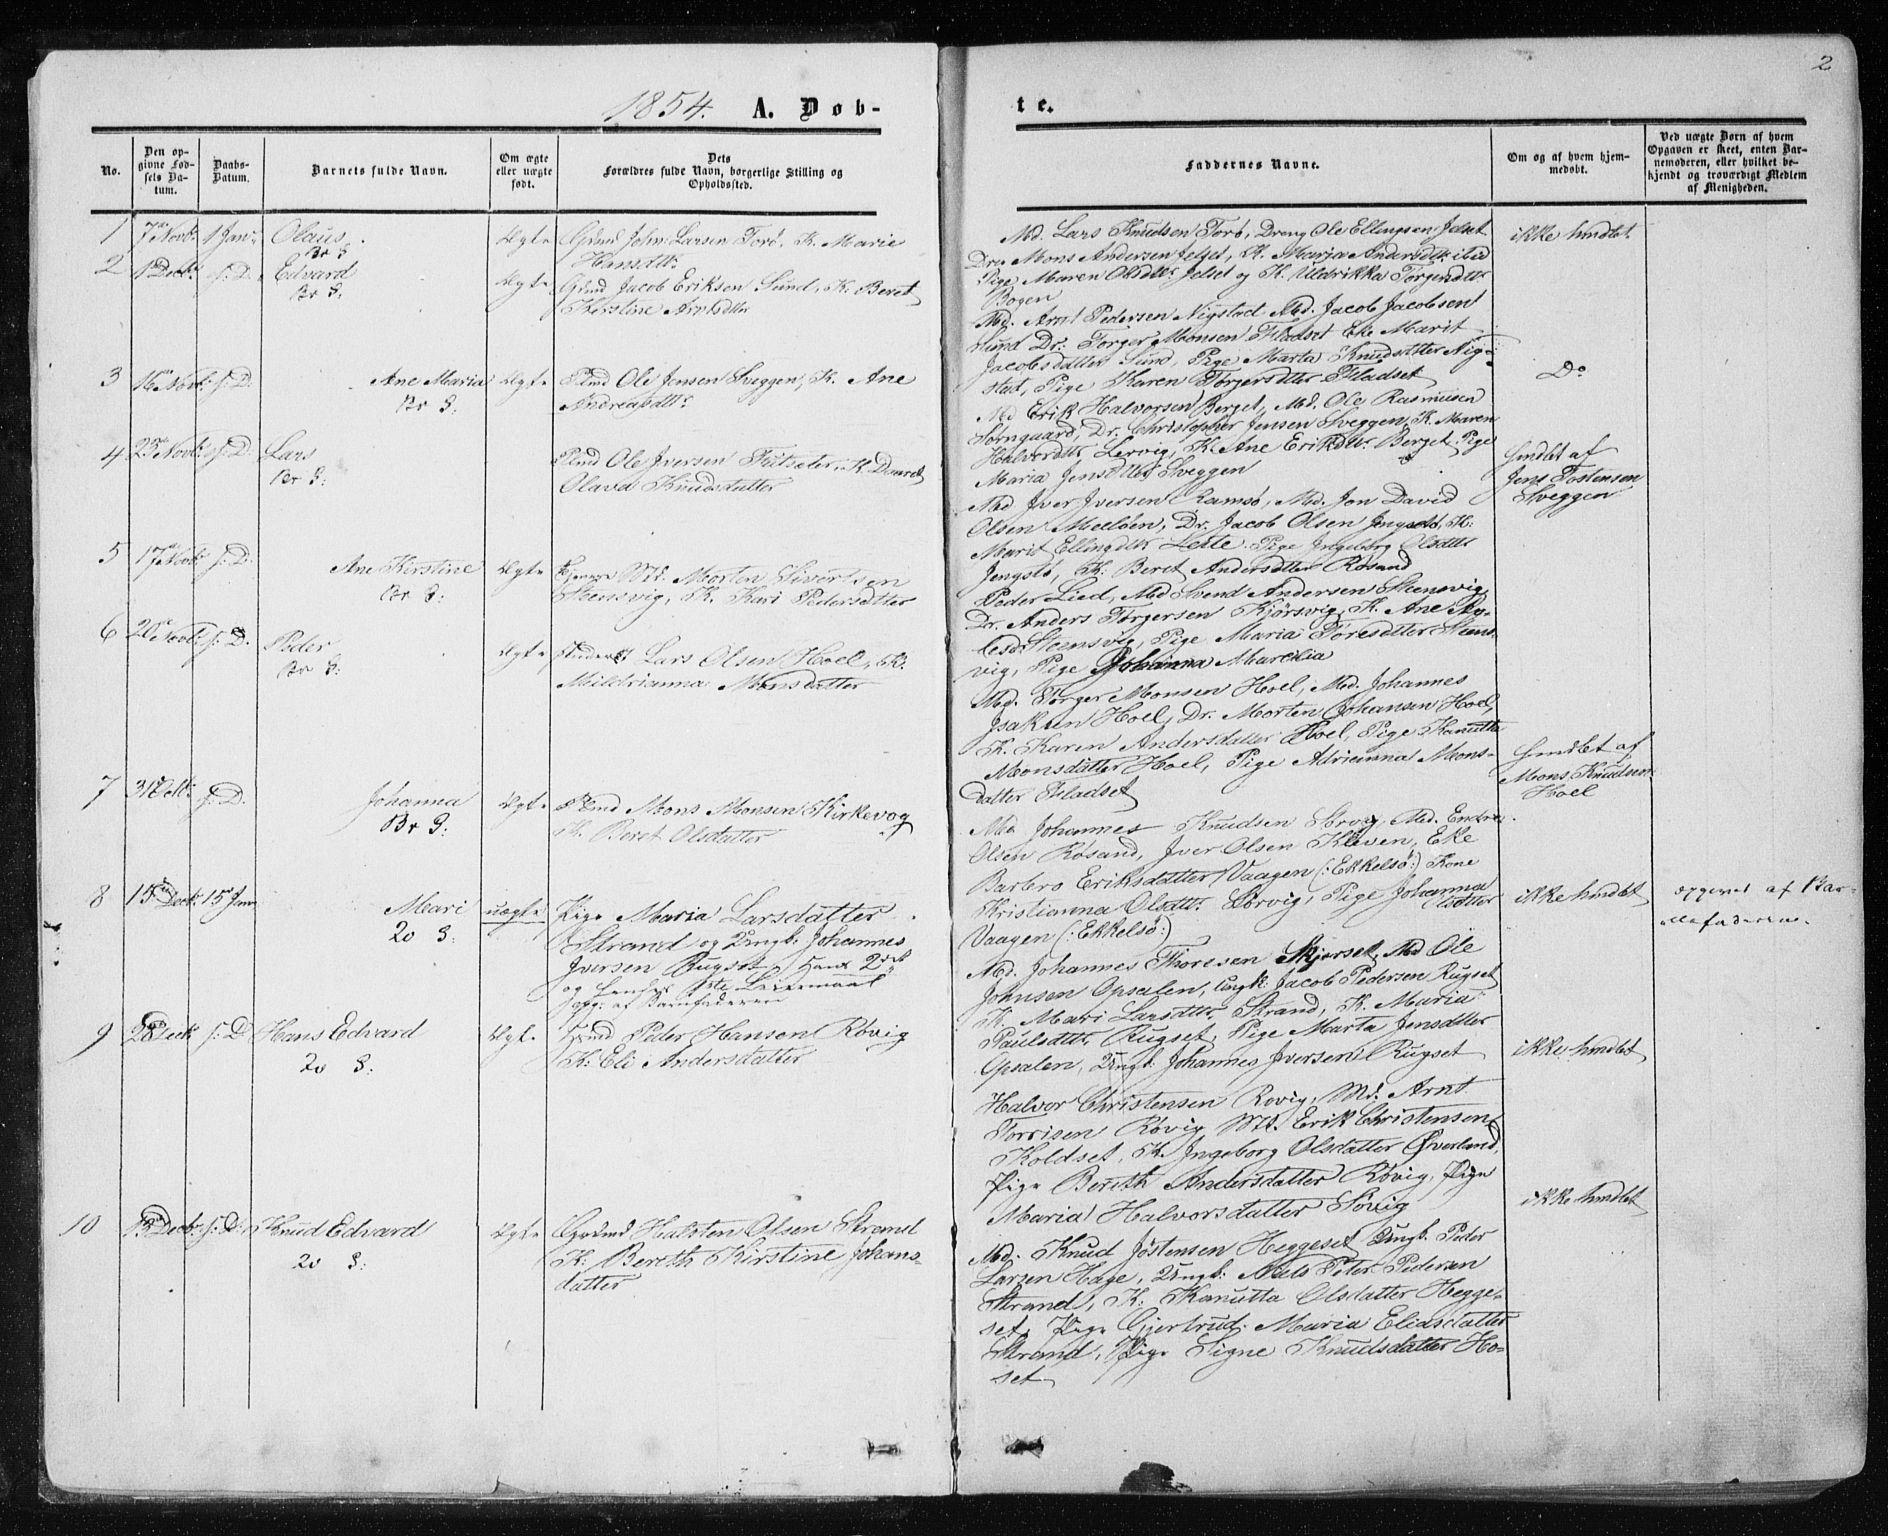 2
1854. A. Døb-
te.
No.
Den op-
givne Fød-
sels Da-
tum.
Daabs-
Datum.
Barnets fulde Navn.
Om ægte
eller uægte
født.
Dets
Forældres fulde Navn, borgerlige Stilling og
Opholdssted.
Faddernes Navne.
Om og af hvem hjem-
medøbt.
Ved uægte Børn af hvem
Opgaven er skeet, enten Bar-
nemoderen, eller hvilket be-
kjendt og troværdigt Medlem
af Menigheden.
1 7 Novb. 1 Jan. Olaus Ægte Gmd John Larsen Torø, K. Marie
Br S:
Hansdtr.
Md. Lars Knudsen Torø, Dreng Ole Ellingsen Jelset
Dr. Mons Andersen Jelset, K. Maria Andersdtr ibid
Pige Maren Olsdtr. Jelset og K. Uldrikka Torgersdtr.
Bogen
ikke hmdbt.
2 1 Decb. s: D. Edvard Ægte Gmd Jacob Eriksen Sund, K. Beret
Br S:
Kirstine Arntsdtter
Md. Arnt Pedersen Nigstad Md. Jacob Jacobsen
Sund Dr: Torger Monsen Fladset Eke Marit
Jacobsdatter Sund, Pige Marta Knudsdtter Nig-
stat, Pige Karen Torgersdtter Fladset
3 16 Novb. s: D. Ane Maria Ægte Plmd Ole Jensen Sveggen, K. Ane
Br S:
Andreasdtr.
Md Erik Halvorsen Berget, Md. Ole Rasmusen
Dr. Christopher Jensen Sveggen, K. Maren
Halvordtr. Lervig, K. Ane Eriksdtr. Berget Pige
Maria Jensdtter Sveggen
Do
4 25 Novb. s: D. Lars Plmd Ole Iversen Futsæter, K.
Br S:
Olava Knudsdatter
Md Iver Iversen Ramsø, Md. Jon David
Olsen Meeløen, Dr. Jacob Olsen Jengstø, K:
Marit Ellingdtr. Leite Pige Ingeborg Olsdatter
Jengstø, K. Beret Andersdtter Røsand
hmdbt af
Jens Tostensen
Sveggen
5 17 Novb. s: D. Ane Kirstine Ægte Md. Morten Siversen
Br S:
Steensvig, K. Kari Pedersdatter
Peder Lied, Md Svend Andersen Steensvig
Dr. Anders Torgersen Kjørsvig, K. Ane
Steensvig, Pige Maria Toresdtter Steens-
vig, Pige Johanna Marcilia
6 20 Novb. s: D. Peder Ægte Lars Olsen Hoel, K.
Br S:
Mildrianna Monsdatter
Md. Torger Monsen Hoel, Md. Johannes
Isaksen Hoel, Dr. Morten Johansen Hoel,
K. Karen Andersdatter Hoel, Pige Kanutta
Monsdatter Hoel, Pige Adrianna Mons-
datter Fladset
hmdbt af
Mons Knudsen
Hoel
7 31 s: D. Johanna Ægte Plmd Mons Monsen Kirkevog
Br S:
K. Beret Olsdatter
Md Johannes Knudsen Md.
Olsen Røsand, Iver Olsen Kleven, Eke
Barbro Eriksdatter Vaagen (: Ekkelsø:) Kone
Kristianna Olsdtr. Sørvig, Pige Johanna
Vaagen (: Ekkelsø:)
8 15 Decb. 15 Jan Mari uægte Pige Maria Larsdatter
20 S:
Strand og Ungk: Johannes
Iversen Rugset, Hans 2det
og hendes 1ste Leiermaal
opg: af Barnefaderen
Md. Johannes Thoresen Skjørset, Md Ole
Johnsen Opsalen, Ungk: Jacob Pedersen Rugset
K. Mari Larsdtr. Strand, K. Maria
Paulsdtr. Rugset, Pige Marta Jensdtter
Opsalen, Ungk. Johannes Iversen Rugset
ikke hmdbt
opgivet af Bar-
nefaderen
9 28 Decb s: D Hans Edvard Ægte Gmd Peder Hansen Røvig
20 S:
K: Eli Andersdatter
Halvor Christensen Røvig, Md. Arnt
Torrisen Røvig Md. Erik Christensen
Koldset, K. Ingeborg Olsdatter Øverland,
Pige Bereth Andersdatter Røvig, Pige
Maria Halvorsdatter Søvig
ikke hmdbt
10 13 Decb. s: D: Knud Edvard Ægte Grmd Halsten Olsen Strand
20 S:
K: Bereth Kirstine Johans-
datter
Md. Knud Jøstensen Heggeset Ungk. Peder
Larsen Hage, Ungk: Niels Peter Pedersen
Strand, K: Kanutta Olsdatter Hegge-
set, Pige Gjertrud Maria Eliasdatter
Strand, Pige Signe Knudsdatter Ho-
set
ikke hmdbt